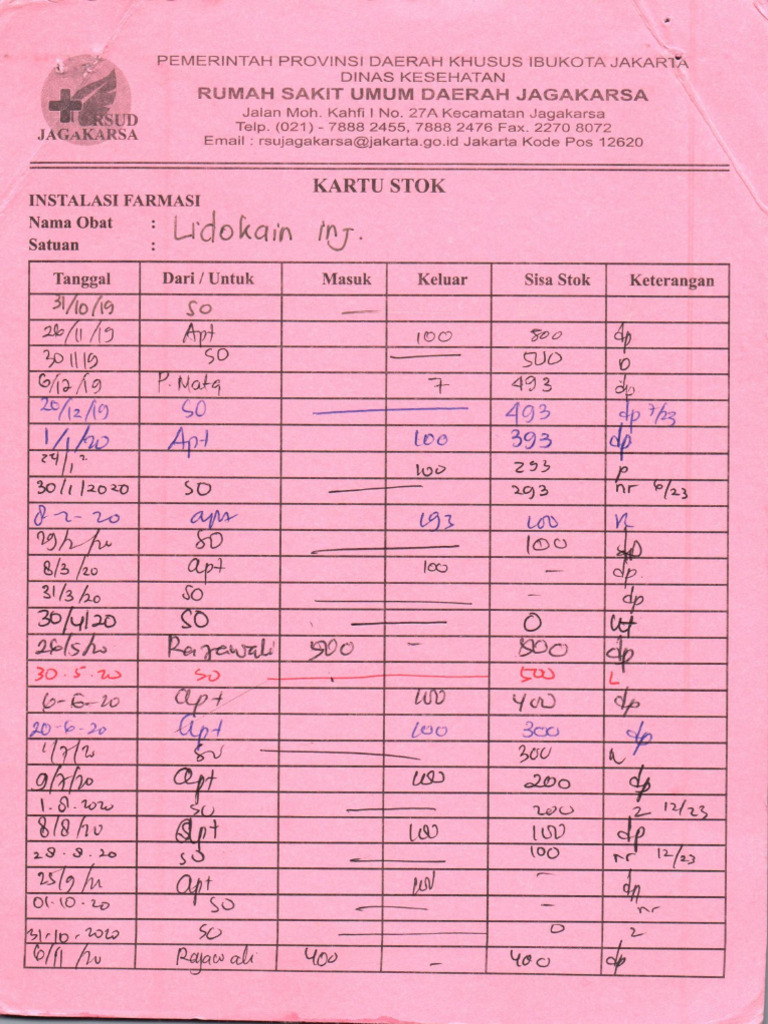 PEMERINTAH PROVINSI DAERAH KHUSUS IBUKOTA JAKARTA
DINAS KESEHATAN
RUMAH SAKIT UMUM DAERAH JAGAKARSA
Jalan Moh. Kahfi I No. 27A Kecamatan Jagakarsa
Telp. (021) - 7888 2455, 7888 2476 Fax. 2270 8072
Email : rsujagakarsa@jakarta.go.id Jakarta Kode Pos 12620
RSUD
JAGAKARSA
KARTU STOK
INSTALASI FARMASI
Nama Obat : Lidokain Inj.
Satuan :
Tanggal Dari / Untuk Masuk Keluar Sisa Stok Keterangan
31/10/19 SO —
26/11/19 Apt 100 500 dp
30 11 19 SO — 500
6/12/19 P. Mata 7 493 dp
20/12/19 SO — 493 dp 7/23
1/1/20 Apt 100 393 dp
24/1 100 293
30/1/2020 SO — 293 nr 6/23
8-2-20 apt 193 100
29/2/20 SO — 100
8/3/20 apt 100 — dp
31/3/20 SO — — dp
30/4/20 SO — 0
26/5/20 Rajawali 500 - 500 dp
30.5.20 SO — 500 L
6-6-20 apt 100 400 dp
20-6-20 apt 100 300 dp
1/7/20 SO — 300
9/7/20 apt 100 200 dp
1.8.2020 SO — 200 2 12/23
8/8/20 apt 100 100 dp
28.8.20 SO — 100 nr 12/23
25/9/20 apt 100 — dp
01.10.20 SO — - nr
31.10.2020 SO — 0 2
6/11/20 Rajawali 400 - 400 dp